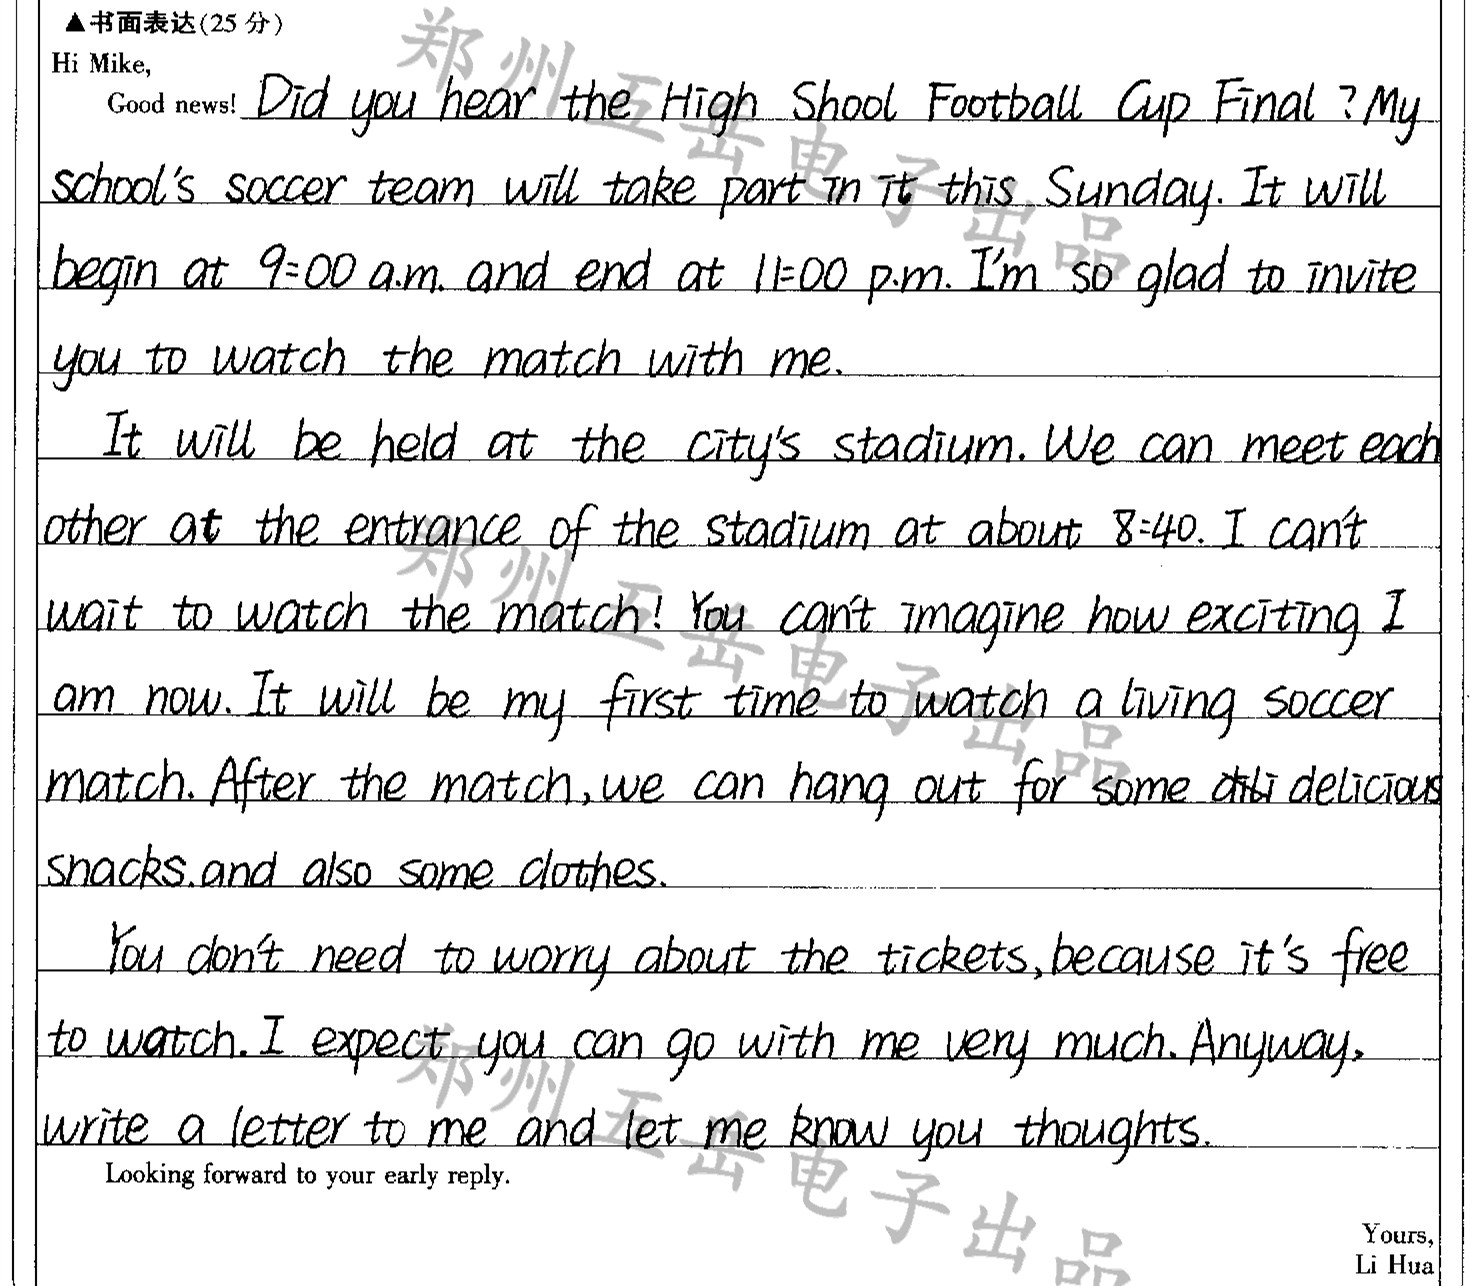 ▲书面表达(25 分)
Hi Mike,
Good news! Did you hear the High Shool Football Cup Final ? My
school's soccer team will take part in it this Sunday. It will
begin at 9:00 a.m. and end at 11:00 p.m. I'm so glad to invite
you to watch the match with me.
It will be held at the city's stadium. We can meet each
other at the entrance of the stadium at about 8:40. I can't
wait to watch the match! You can't imagine how exciting I
am now. It will be my first time to watch a living soccer
match. After the match, we can hang out for some delicious
snacks. and also some clothes.
You don't need to worry about the tickets, because it's free
to watch. I expect you can go with me very much. Anyway,
write a letter to me and let me know you thoughts.
Looking forward to your early reply.
Yours,
Li Hua
郑州五岳电子出品
郑州五岳电子出品
郑州五岳电子出品